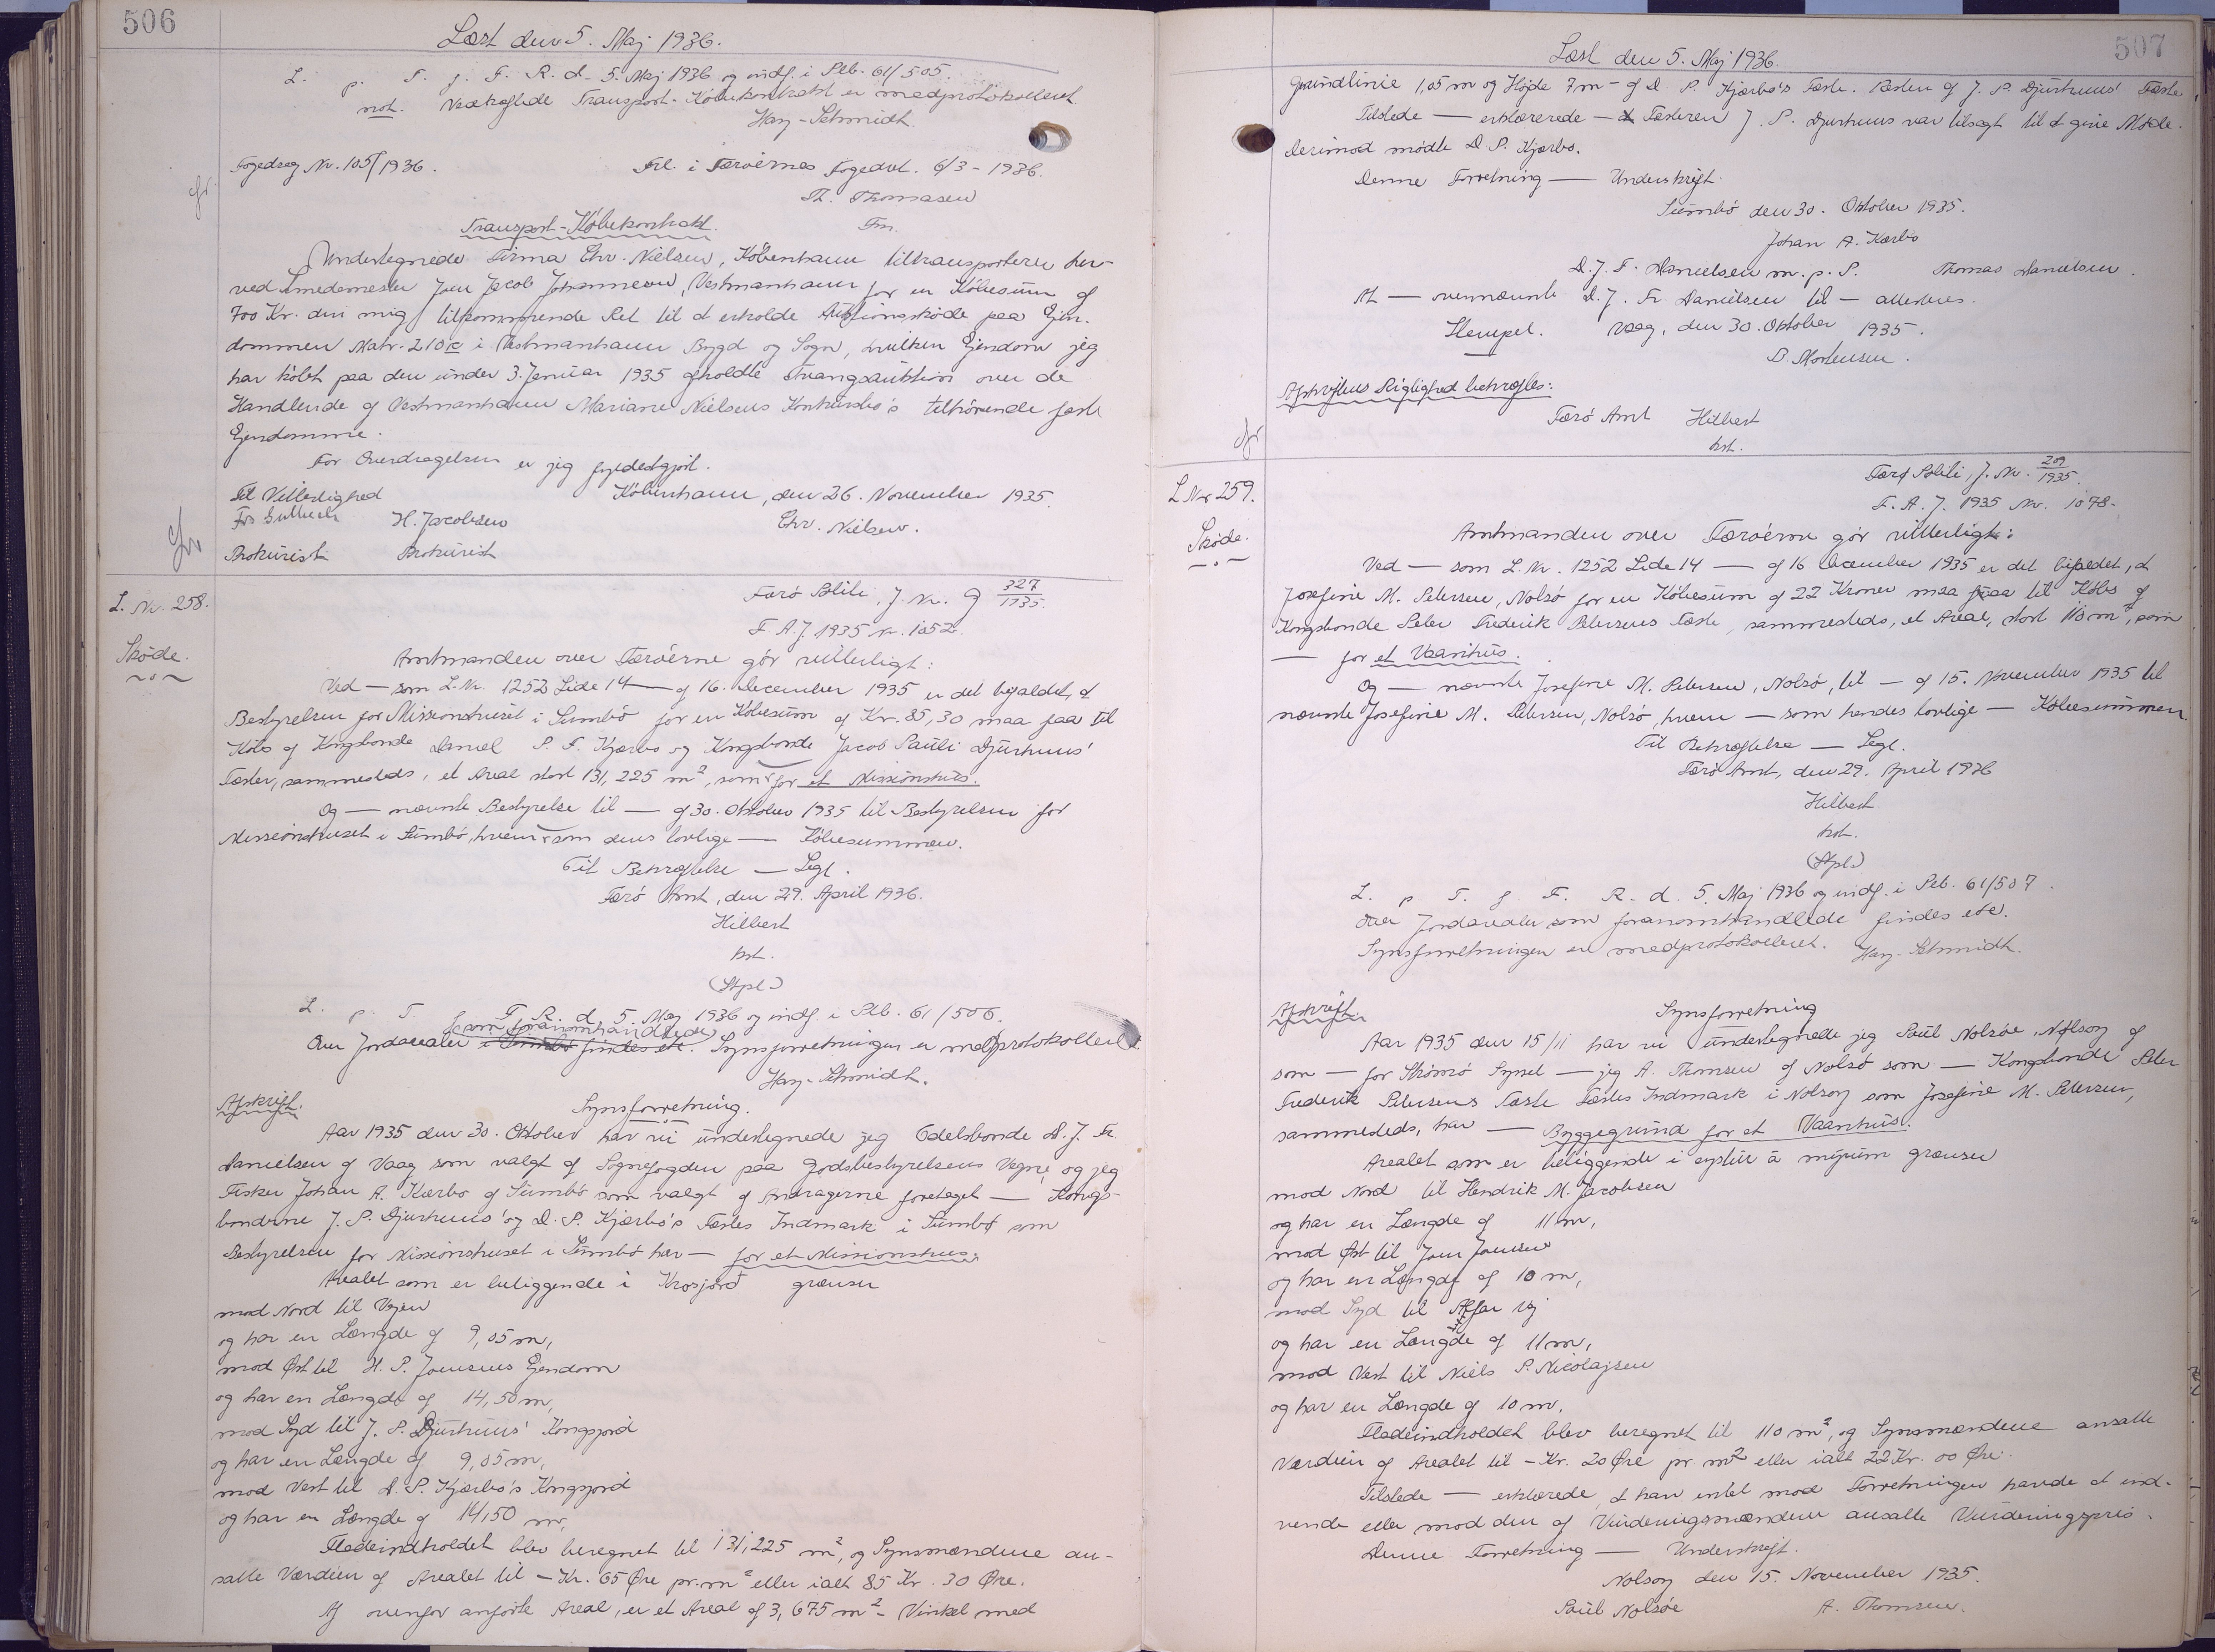 506
Læst den 5. Maj 1936.
L. p. T. f. F. R. d. 5. Maj 1936 og indf. i Ptb. 61/505.
not. Vedhæftede Transport-Købekontrakt er medprotokolleret
Hay-Schmidt.
Fogedsag Nr. 105/1936.
Frl. i Færøernes Fogedret. 6/3 - 1936.
Th. Thomasen
Fm.
Transport-Købekontrakt.
Undertegnede Firma Chr. Nielsen, København tiltransporterer her-
ved Smedemester Joen Jacob Johannesen, Vestmanhavn for en Købesum af
700 Kr. den mig tilkommende Ret til at erholde Auktionsskøde paa Ejen-
dommen Matr. 210c i Vestmanhavn Bygd og Sogn, hvilken Ejendom jeg
har købt paa den under 3. Januar 1935 afholdte Tvangsauktion over de
Handlende af Vestmanhavn Mariane Nielsens Konkursbo's tilhørende faste
Ejendomme.
For Overdragelsen er jeg fyldestgjort.
Til Vitterlighed
København, den 26. November 1935.
H. Jacobsen
Chr. Nielsen.
Prokurist Prokurist
L. Nr. 258.
Skøde.
Færø Politi, J. Nr. 9 327/1935.
F. A. J. 1935 Nr. 1052.
Amtmanden over Færøerne gør vitterligt:
Ved — som L. Nr. 1252 Lide 14 — af 16. December 1935 er det befaldet, at
Bestyrelsen for Missionshuset i Sumbø for en Købesum af Kr. 85,30 maa faa til
Købs af Kongsbonde Daniel P. F. Kjærbo og Kongsbonde Jacob Pauli Djurhuus'
Fæster, sammesteds, et Areal stort 131,225 m², som — for et Missionshus.
Og — nævnte Bestyrelse til — af 30. Oktober 1935 til Bestyrelsen for
Missionshuset i Sumbø, hvem — som dens lovlige — Købesummen.
Til Bekræftelse — Segl.
Færø Amt, den 29. April 1936.
Hilbert
kst.
(Stpl.)
L. p. T. f. F. R. d. 5. Maj 1936 og indf. i Ptb. 61/506.
som foranomhandlede
Over Jordarealer i Sumbø findes etc. Synsforretningen er medprotokolleret.
Hay-Schmidt.
Afskrift.
Synsforretning.
Aar 1935 den 30. Oktober har vi undertegnede jeg Odelsbonde D. J. Fr.
Danielsen af Vaag som valgt af Sognefogden paa Godsbestyrelsens Vegne, og jeg
Fisker Johan A. Kærbo af Sumbø som valgt af Andragerne foretaget — Kongs-
bønderne J. P. Djurhuus' og D. P. Kjærbo's Fæstes Indmark i Sumbø som
Bestyrelsen for Missionshuset i Sumbø har — for et Missionshus.
Arealet som er beliggende i Krosjørd grænser
mod Nord til Vejen
og har en Længde af 9,05 m,
mod Øst til H. P. Joensens Ejendom
og har en Længde af 14,50 m,
mod Syd til J. P. Djurhuus' Kongsjord
og har en Længde af 9,05 m,
mod Vest til D. P. Kjærbo's Kongsjord
og har en Længde af 14,50 m,
Fladeindholdet blev beregnet til 131,225 m², og Synsmændene an-
satte Værdien af Arealet til — Kr. 65 Øre pr. m² eller ialt 85 Kr. 30 Øre.
Af ovenfor anførte Areal, er et Areal af 3,675 m² - Vinkel med
507
Læst den 5. Maj 1936.
Grundlinie 1,05 m og Højde 7 m - af D. P. Kjærbo's Fæste. Resten af J. P. Djurhuus' Fæste
Tilstede — erklærede — at Fæsteren J. P. Djurhuus var tilsagt til at give Møde.
Derimod mødte D. P. Kjærbo.
Denne Forretning — Underskrift.
Sumbø den 30. Oktober 1935.
Johan A. Kærbo
D. J. F. Danielsen m. p. P. Thomas Danielsen.
At — ovennævnte D. J. Fr. Danielsen til — attesteres.
Stempel. Vaag, den 30. Oktober 1935.
D. Mortensen.
Afskriftens Rigtighed bekræftes:
Færø Amt Hilbert
kst.
L Nr 259.
Skøde.
Færø Politi, J. Nr. 209/1935.
F. A. J. 1935 Nr. 1078.
Amtmanden over Færøerne gør vitterligt:
Ved — som L. Nr. 1252 Lide 14 — af 16 December 1935 er det bifaldet, at
Josefine M. Petersen, Nolsø for en Købesum af 22 Kroner maa faa til Købs af
Kongsbonde Peter Frederik Petersens Fæste, sammesteds, et Areal, stort 110 m², som
— for et Vaanhus.
Og — nævnte Josefine M. Petersen, Nolsø, til — af 15. November 1935 til
nævnte Josefine M. Petersen, Nolsø, hvem — som hendes lovlige — Købesummen.
Til Bekræftelse — Segl.
Færø Amt, den 29. April 1936
Hilbert
kst.
(Stpl.)
L. p T. f F. R. d. 5. Maj 1936 og indf. i Ptb. 61/507.
Over Jordarealer som foranomhandlede findes etc.
Synsforretningen er medprotokolleret. Hay-Schmidt.
Afskrift.
Synsforretning
Aar 1935 den 15/11 har vi undertegnede jeg Poul Nolsøe, Nolsoy af
som — for Strømø Syssel — jeg A. Thomsen af Nolsø som — Kongsbonde Peter
Frederik Petersens Fæste Fæstes Indmark i Nolsoy som Josefine M. Petersen,
sammesteds, har — Byggegrund for et Vaanhus.
Arealet som er beliggende i grænser
mod Nord til Hendrik M. Jacobsen
og har en Længde af 11 m,
mod Øst til Joen Joensen
og har en Længde af 10 m,
mod Syd til vej
og har en Længde af 11 m,
mod Vest til Niels P. Nicolajsen
og har en Længde af 10 m.
Fladeindholdet blev beregnet til 110 m², og Synsmændene ansatte
Værdien af Arealet til - Kr. 20 Øre pr. m² eller ialt 22 Kr. 00 Øre.
Tilstede — erklærede, at han intet mod Forretningen havde at ind-
vende eller mod den af Vurderingsmændene ansatte Vurderingspris.
Denne Forretning — Underskrift.
Nolsoy den 15. November 1935.
Poul Nolsøe A. Thomsen.